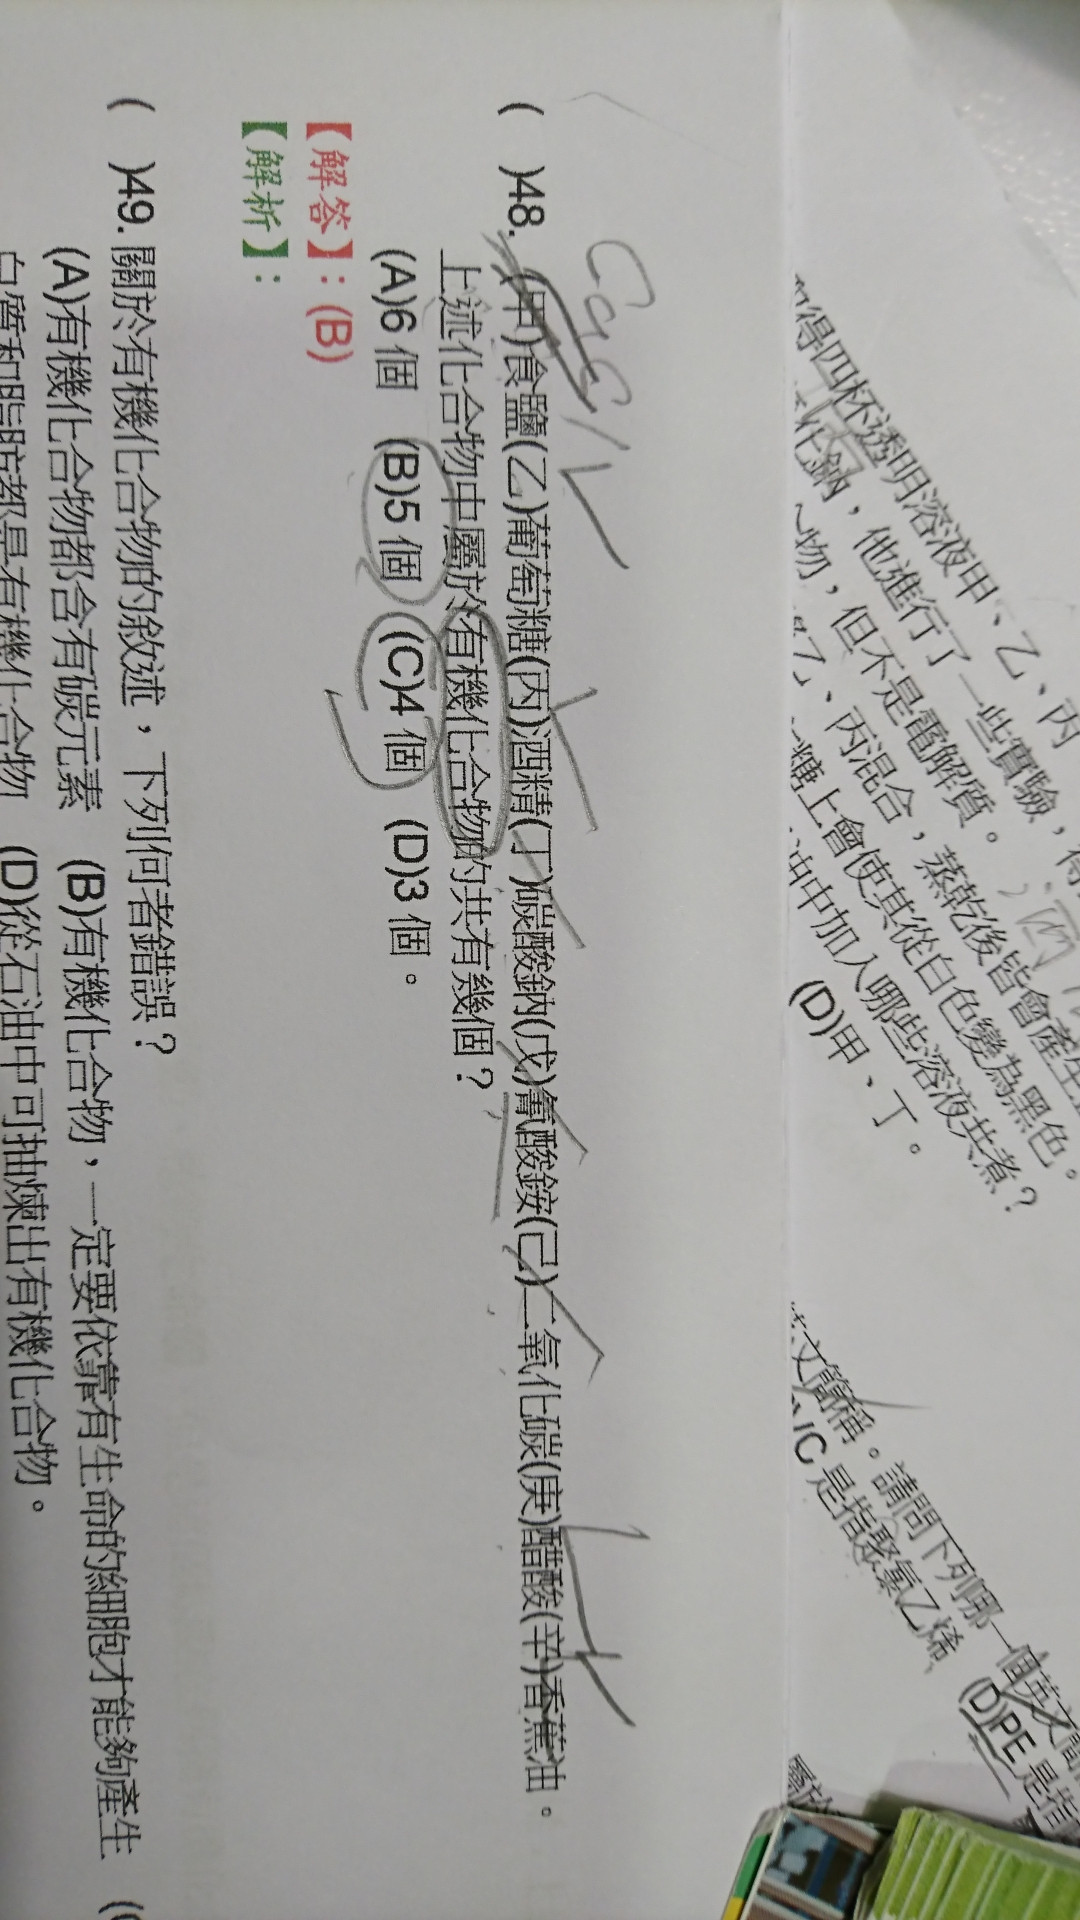 知得四杯透明溶液甲、乙、丙
化鈉，他進行了一些實驗，得
物，但不是電解質。
乙、丙混合，蒸乾後皆會產生
糖上會使其從白色變為黑色。
油中加入哪些溶液共煮？
(D)甲、丁。
英文簡稱。請問下列哪一個英文簡
是指聚氯乙烯 (D)PE 是指
屬於
( )48. (甲)食鹽(乙)葡萄糖(丙)酒精(丁)碳酸鈉(戊)氰酸銨(己)二氧化碳(庚)醋酸(辛)香蕉油。
上述化合物中屬於有機化合物的共有幾個？
(A)6 個 (B)5 個 (C)4 個 (D)3 個。
【解答】：(B)
【解析】：
( )49. 關於有機化合物的敘述，下列何者錯誤？
(A)有機化合物都含有碳元素 (B)有機化合物，一定要依靠有生命的細胞才能夠產生
白質和脂肪都是有機化合物 (D)從石油中可抽煉出有機化合物。